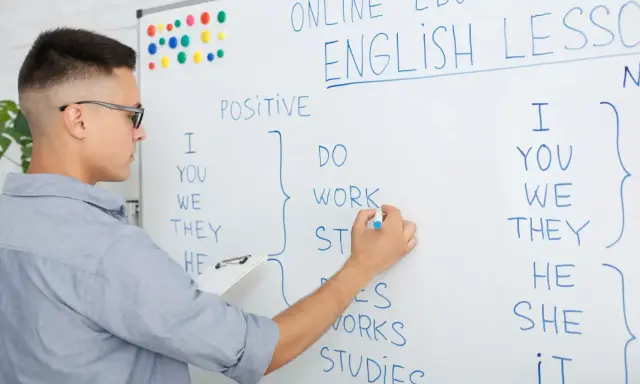 ONLINE EDU
ENGLISH LESSO
POSITIVE
N
I
YOU
WE
THEY
HE
DO
WORK
ST
WORKS
STUDIES
I
YOU
WE
THEY
HE
SHE
iT